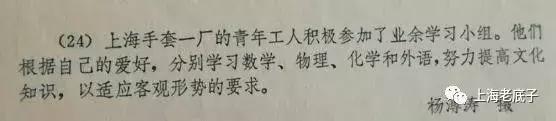 (24) 上海手套一厂的青年工人积极参加了业余学习小组。他们
根据自己的爱好，分别学习数学、物理、化学和外语，努力提高文化
知识，以适应客观形势的要求。
杨海涛 摄
上海老底子